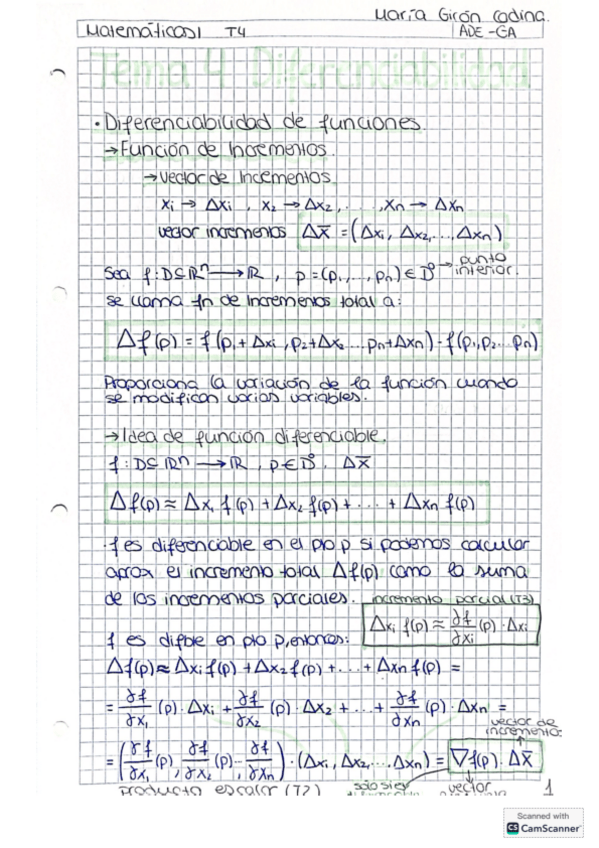 María Girón Codina.
Matemáticas I T4 ADE-GA
Tema 4 Diferenciabilidad
• Diferenciabilidad de funciones.
→ Función de Incrementos.
→ Vector de Incrementos
x₁ → Δx₁ , x₂ → Δx₂, . . . , xn → Δxn
vector incrementos Δx̄ = (Δx₁, Δx₂, ..., Δxn)
Sea f: D⊆ℝⁿ → ℝ, p = (p₁, ..., pn) ∈ D° → punto interior.
se llama fn de incrementos total a:
Δf(p) = f(p₁ + Δx₁, p₂+Δx₂ ... pn+Δxn) - f(p₁, p₂ ... pn)
Proporciona la variación de la función cuando
se modifican varias variables.
→ Idea de función diferenciable.
f: D⊆ℝⁿ → ℝ, p∈D°, Δx̄
Δf(p) ≈ Δx₁ f(p) + Δx₂ f(p) + ... + Δxn f(p)
· f es diferenciable en el pto p si podemos calcular
aprox el incremento total Δf(p) como la suma
de los incrementos parciales. incremento parcial (T3)
Δxi f(p) ≈ ∂f/∂xi (p) · Δxi
f es difble en pto p, entonces:
Δf(p) ≈ Δx₁ f(p) + Δx₂ f(p) + ... + Δxn f(p) =
= ∂f/∂x₁ (p) · Δx₁ + ∂f/∂x₂ (p) · Δx₂ + ... + ∂f/∂xn (p) · Δxn =
vector de incremento
= (∂f/∂x₁ (p), ∂f/∂x₂ (p) ... ∂f/∂xn (p)) · (Δx₁, Δx₂, ... Δxn) = ∇f(p) · Δx̄
producto escalar (T2) sólo si es vector 1
Scanned with
CS CamScanner